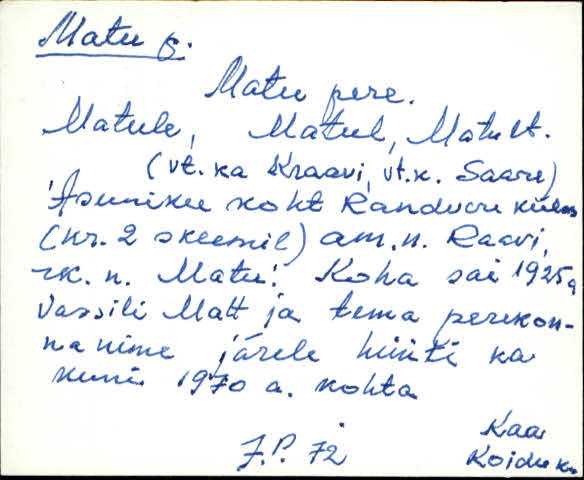 Matu s.
Matu pere.
Matule, Matul, Matult.
(vt. ka Kraavi, vt.k. Saare)
Asuniku koht Randvere külas
(nr. 2 skeemil) am.n. Raavi,
rk. n. Matu. Koha sai 1925 a
Vassili Matt ja tema perekon-
na nime järele hüüti ka
kuni 1970 a. kohta
J.P. 72
Kaa
Koidu k.